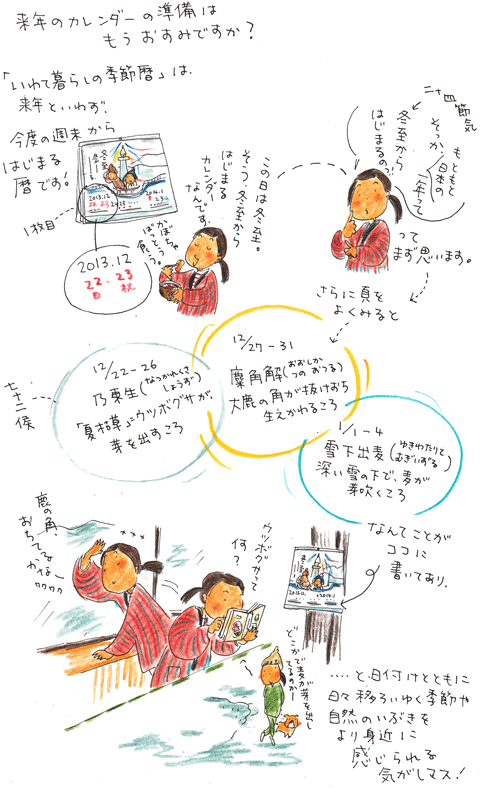 来年のカレンダーの準備は
もうおすみですか？
「いわて暮らしの季節暦」は、
来年といわず、
今度の週末から
はじまる
暦です！
1枚目
2013.12
22・23
日 祝
この日は冬至。
そう、冬至から
はじまる
カレンダー
なんです。
かぼちゃ
ばっとう
食う。
二十四節気
もともと
日本の
二年って
そっか、
冬至から
はじまるの？
って
まず思います。
さらに頁を
よくみると
七十二候
12/22-26
乃東生(なつかれくさしょうず)
「夏枯草」=ウツボグサが、
芽を出すころ
12/27-31
麋角解(おおしかのつのおつる)
大鹿の角が抜けおち
生えかわるころ
1/1-4
雪下出麦(ゆきわたりてむぎいずる)
深い雪の下で、麦が
芽吹くころ
なんてことが
ココに
書いてあり、
鹿の角、
おちてる
かなー
ウツボグサって
何？
どこかで麦が芽を出し
てるのかー
‥‥と、日付けとともに
日々移ろいゆく季節や
自然のいぶきを
より身近に
感じられる
気がしマス！